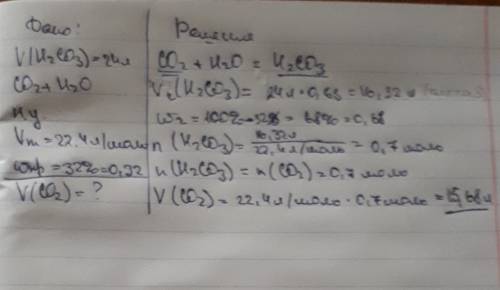 Дано:
V(H₂CO₃)=24л
CO₂+H₂O
ну
Vm=22,4л/моль
wпр=32%=0,32
V(CO₂)=?
Решение
CO₂+H₂O=H₂CO₃
V₂(H₂CO₃)= 24л·0,68=16,32л
w₂=100%-32%=68%=0,68
n(H₂CO₃)= 16,32л/22,4л/моль =0,7моль
n(H₂CO₃)=n(CO₂)=0,7моль
V(CO₂)=22,4л/моль·0,7моль=15,68л